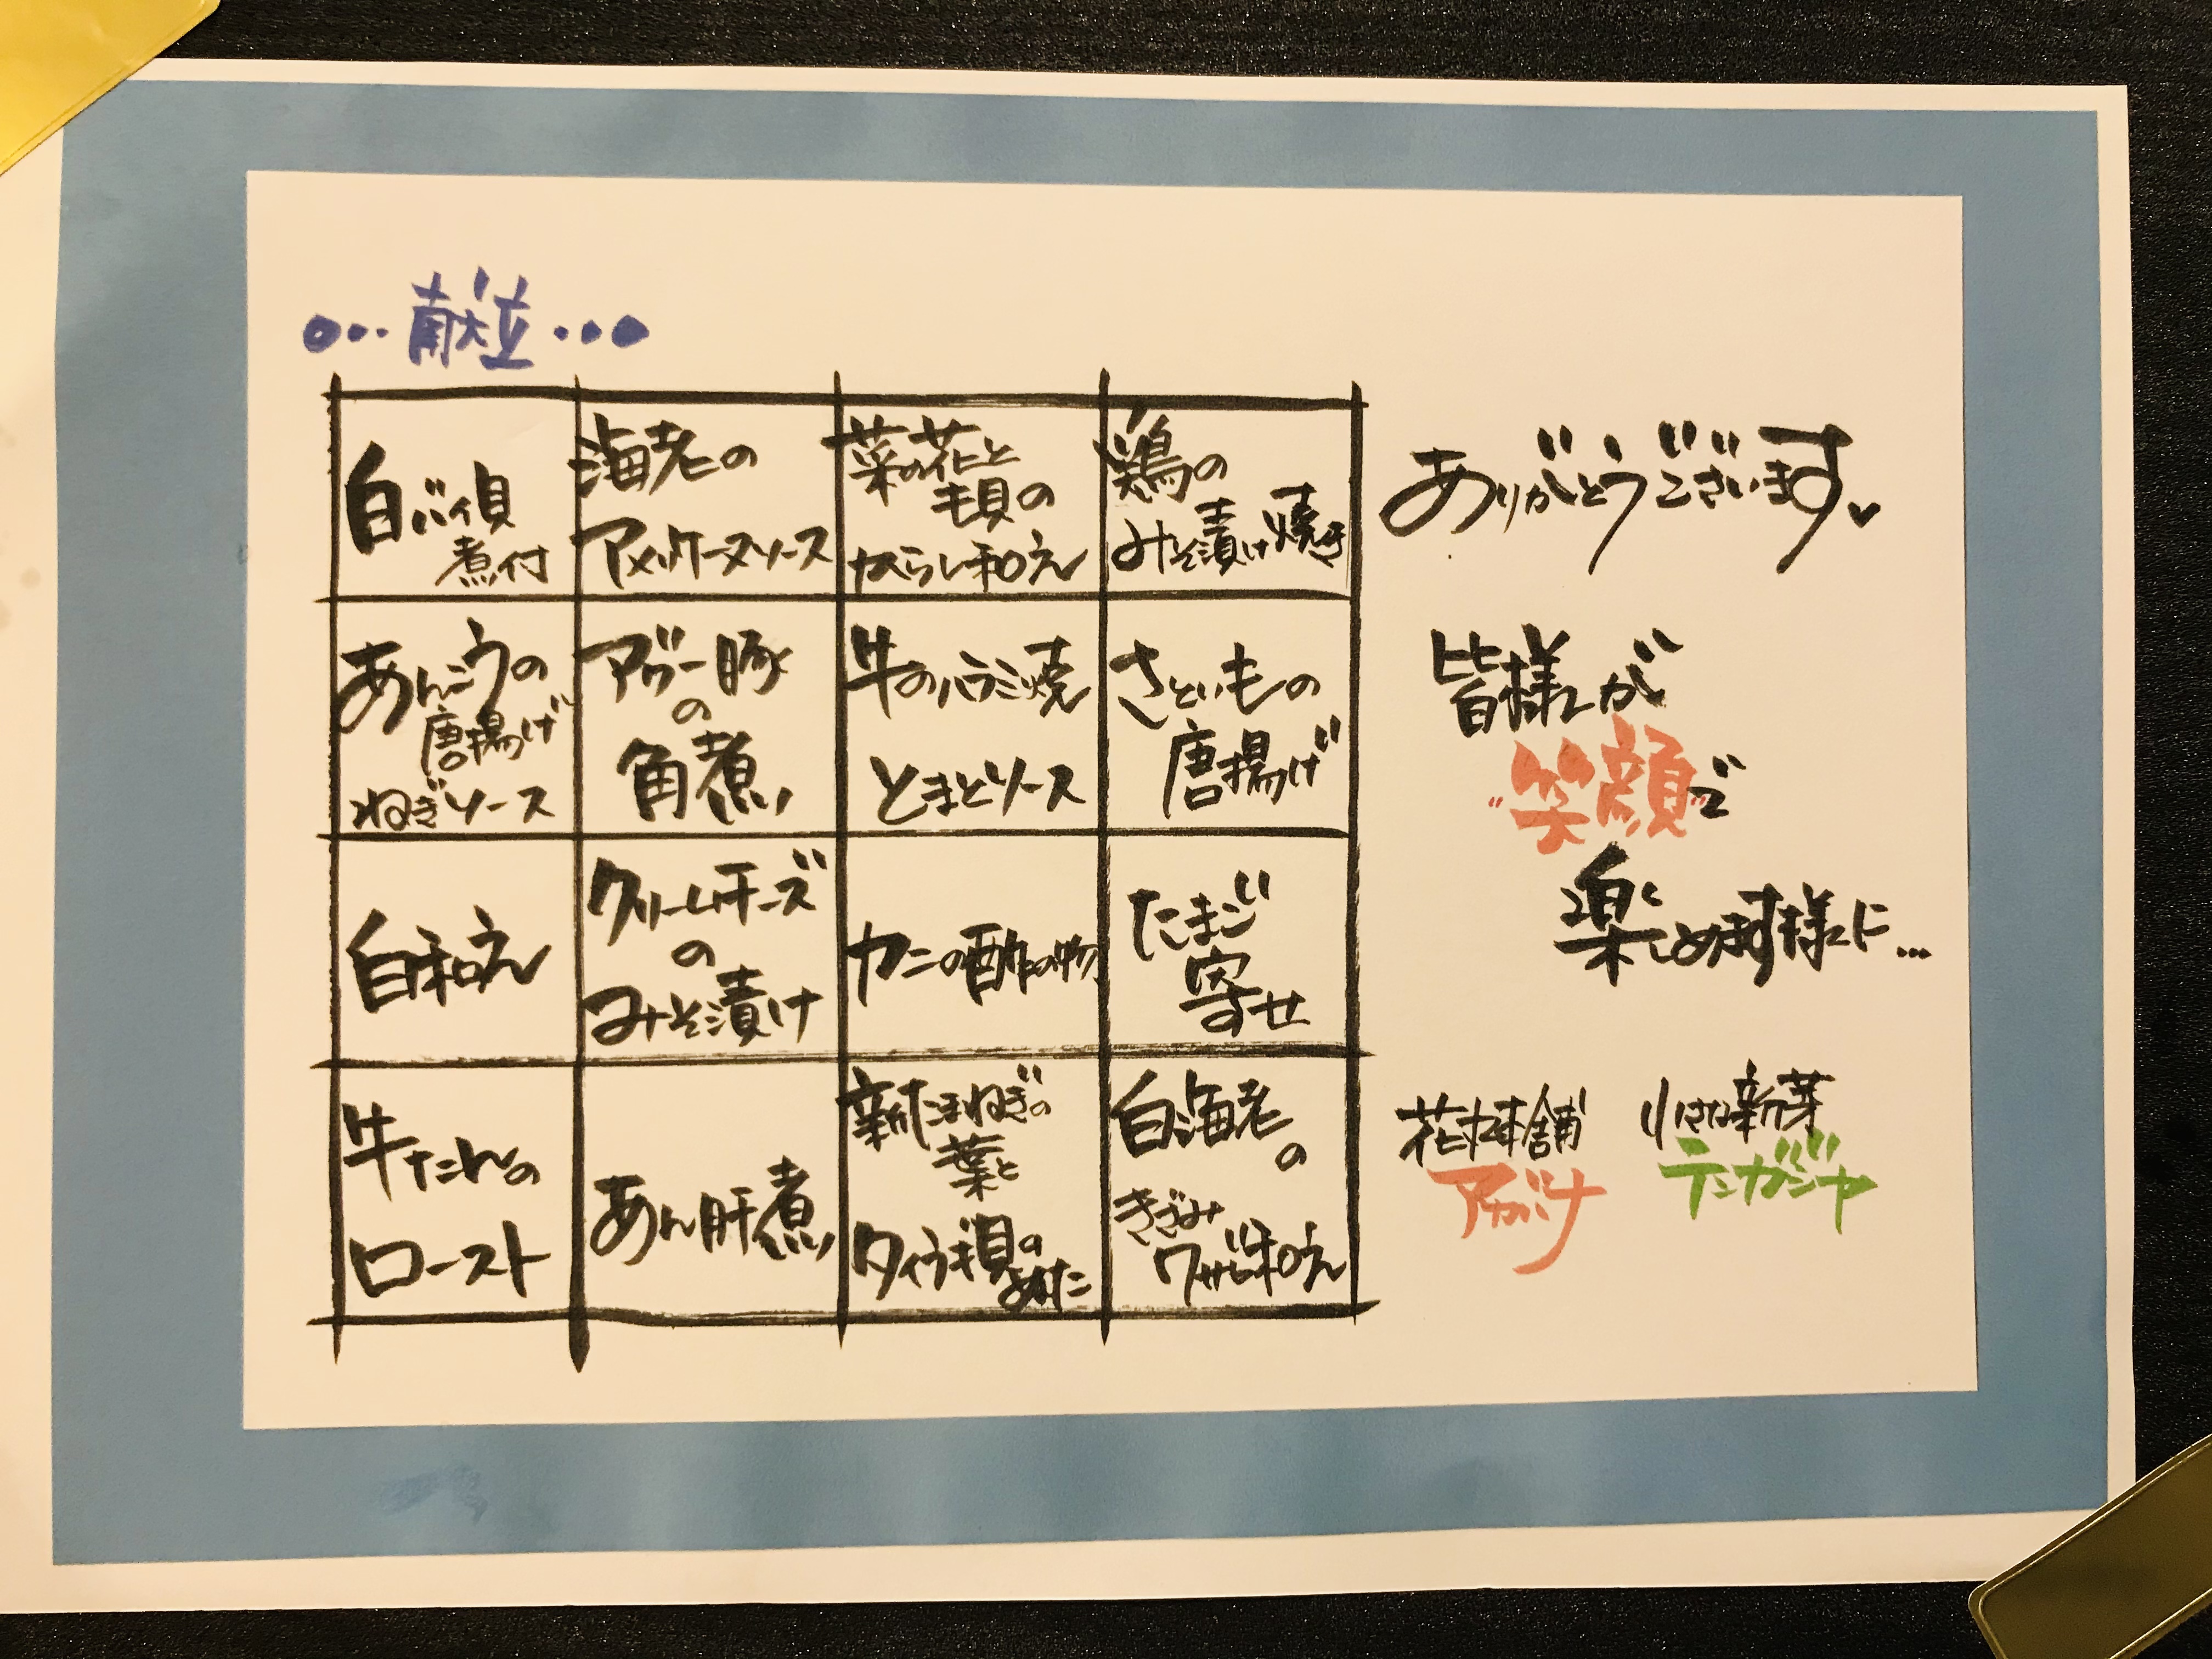 ●••献立•••●
白バイ貝
煮付
海老の
アメリケーヌソース
菜の花と
毛貝の
からし和え
鶏の
みそ漬け焼き
あんこうの
唐揚げ
ねぎソース
アグー豚
の
角煮
牛のハラミ焼
とまとソース
さといもの
唐揚げ
白和え
クリームチーズ
の
みそ漬け
カニの酢の物
たまご
寄せ
牛たんの
ロースト
あん肝煮
新たまねぎの
葉と
タイラ貝のぬた
白海老
の
きざみ
ワサビ和え
ありがとうございます
皆様が
"笑顔"で
楽しめます様に...
花林本舗
アガパナ
小さな新芽
テンガジャヤ